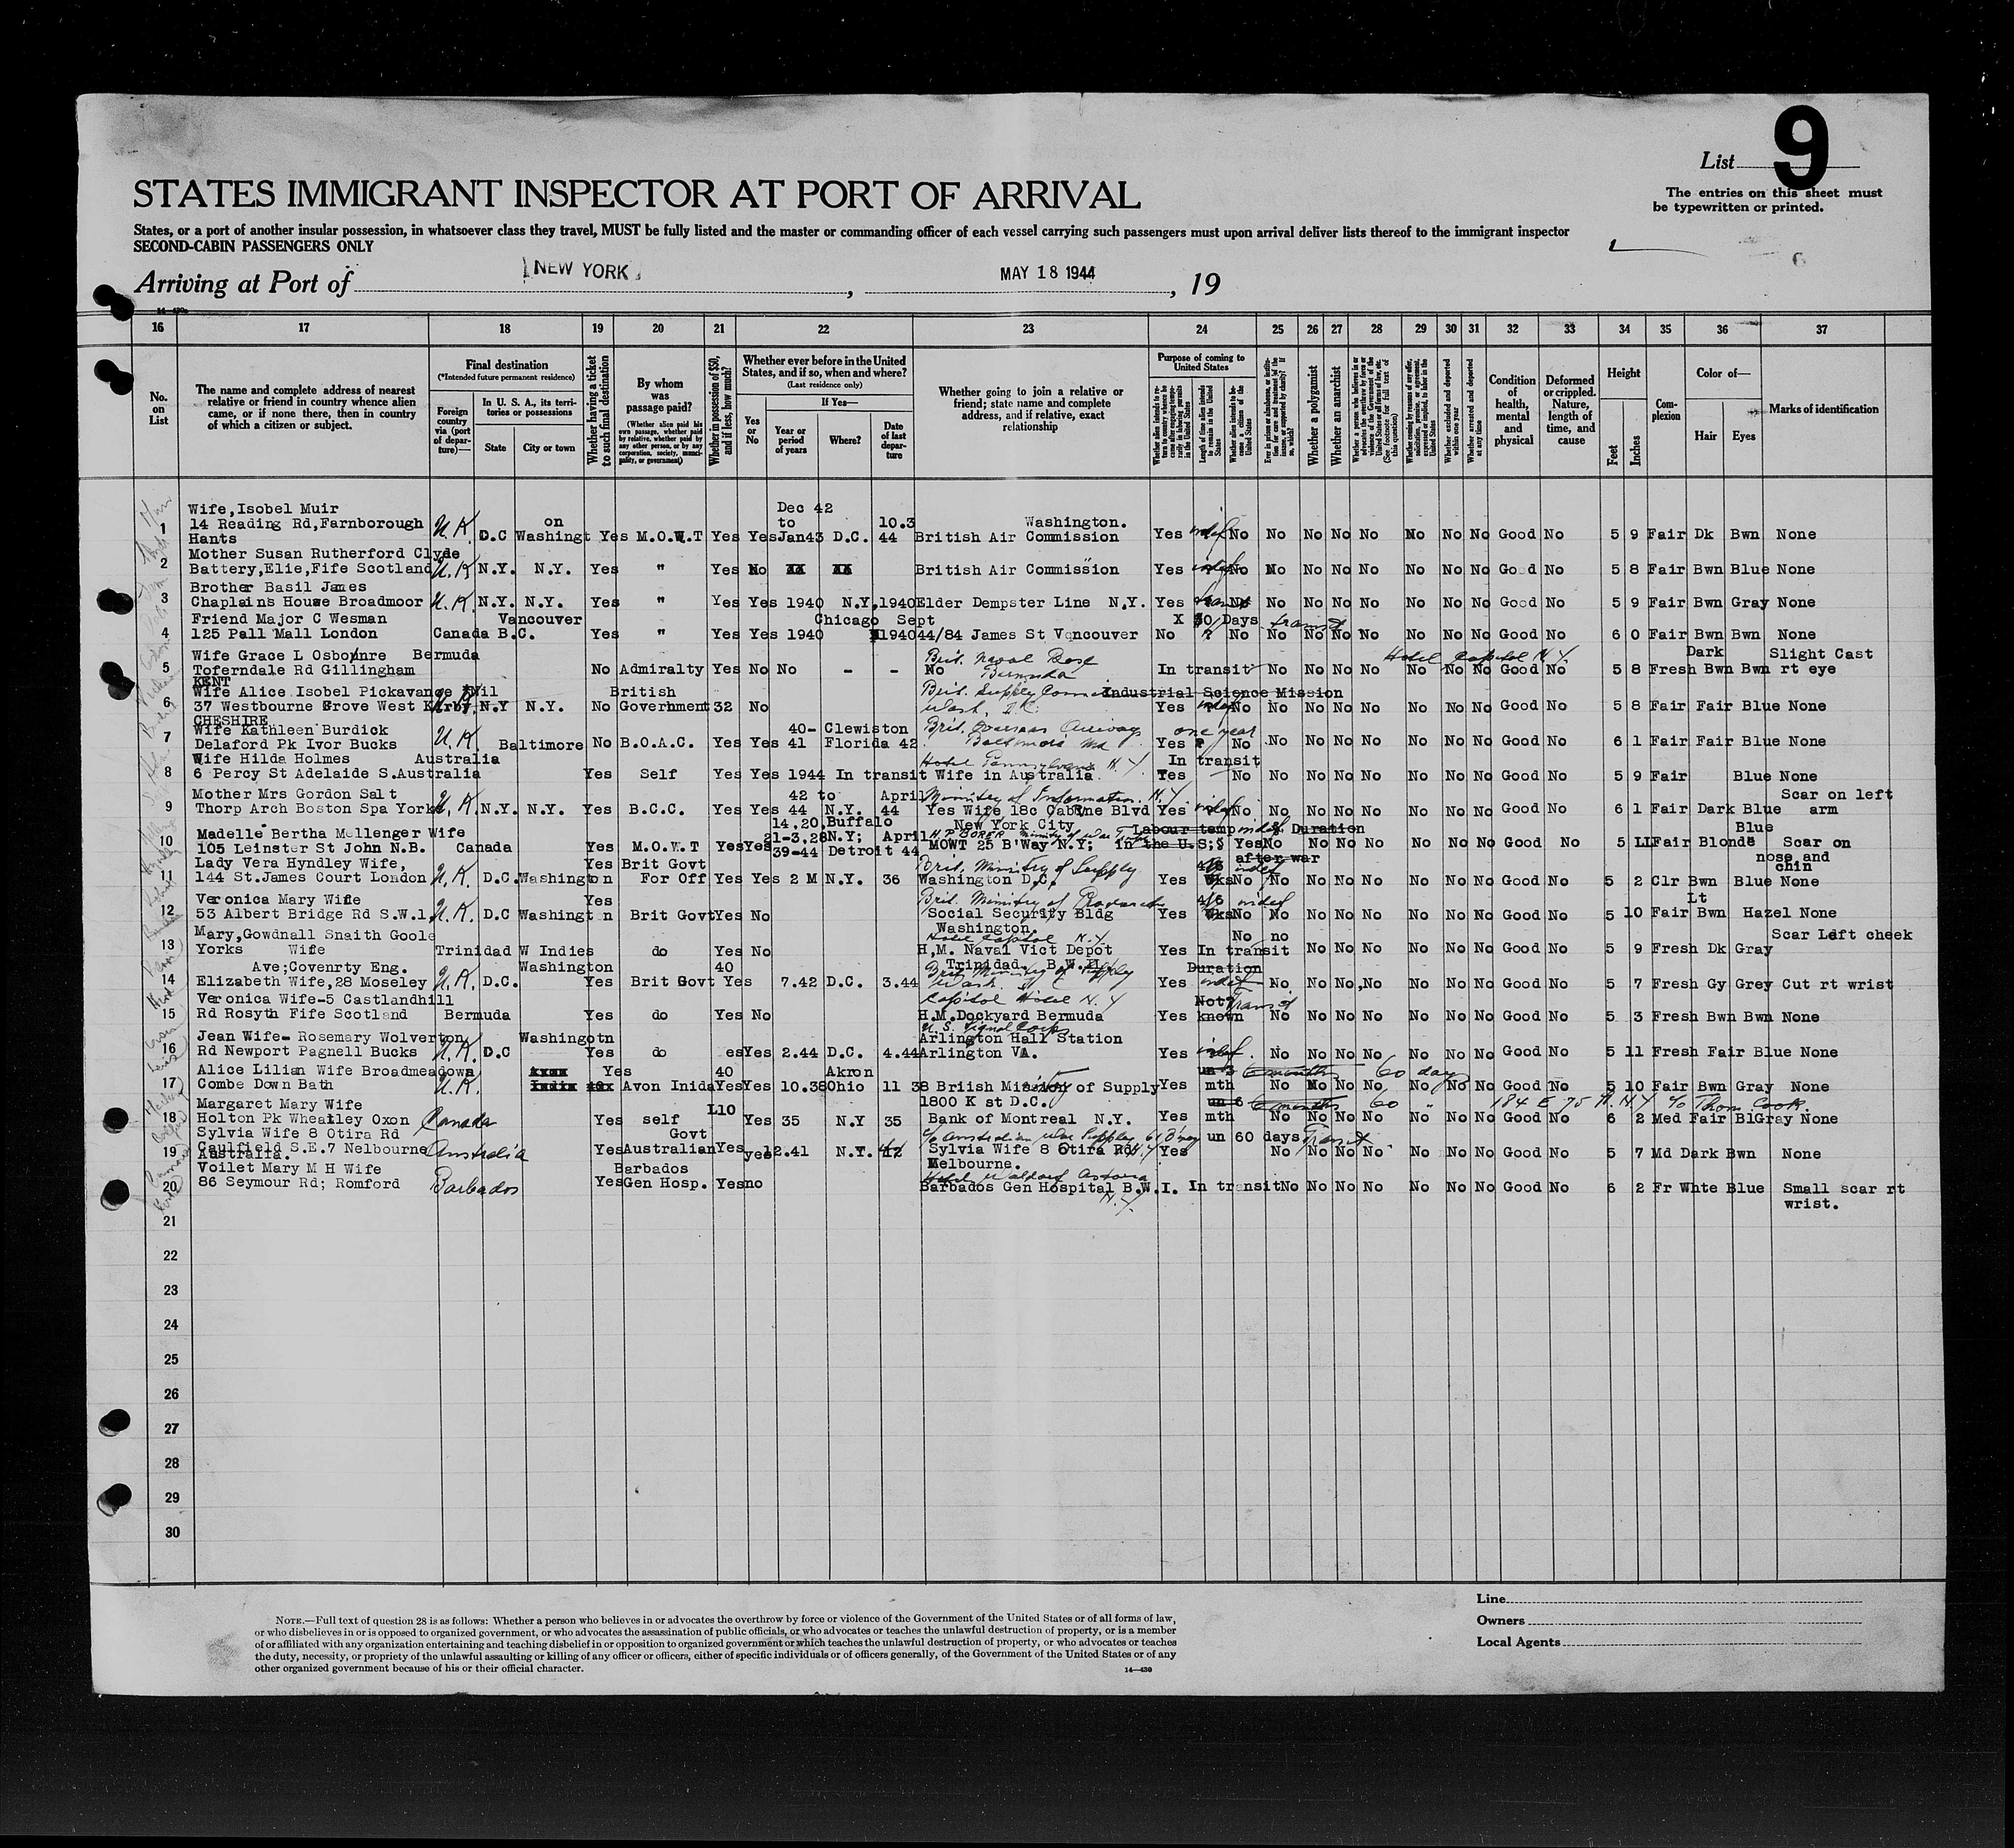 List 9
The entries on this sheet must
be typewritten or printed.
STATES IMMIGRANT INSPECTOR AT PORT OF ARRIVAL
States, or a port of another insular possession, in whatsoever class they travel, MUST be fully listed and the master or commanding officer of each vessel carrying such passengers must upon arrival deliver lists thereof to the immigrant inspector
SECOND-CABIN PASSENGERS ONLY
Arriving at Port of NEW YORK, MAY 18 1944, 19
16 17 18 19 20 21 22 23 24 25 26 27 28 29 30 31 32 33 34 35 36 37
No. on List
The name and complete address of nearest relative or friend in country whence alien came, or if none there, then in country of which a citizen or subject.
Final destination
(*Intended future permanent residence)
Foreign country via (port of departure)—
In U. S. A., its territories or possessions
State
City or town
Whether having a ticket to such final destination
By whom was passage paid?
(Whether alien paid his own passage, whether paid by relative, whether paid by any other person, or by any corporation, society, municipality, or government)
Whether in possession of $50, and if less, how much?
Whether ever before in the United States, and if so, when and where?
(Last residence only)
Yes or No
If Yes—
Year or period of years
Where?
Date of last departure
Whether going to join a relative or friend; state name and complete address, and if relative, exact relationship
Purpose of coming to United States
Length of time alien intends to remain in the United States
Whether alien intends to become a citizen of the United States
Whether a polygamist
Whether an anarchist
Whether excluded and deported within one year
Whether arrested and deported at any time
Condition of health, mental and physical
Deformed or crippled. Nature, length of time, and cause
Height
Feet
Inches
Complexion
Color of—
Hair
Eyes
Marks of identification
Wife,Isobel Muir Dec 42
14 Reading Rd,Farnborough on to 10.3 Washington.
1 Hants U.K. D.C Washingt Yes M.O.W.T Yes Yes Jan43 D.C. 44 British Air Commission Yes indef No No No No No No No No Good No 5 9 Fair Dk Bwn None
Mother Susan Rutherford Clyde
2 Battery,Elie,Fife Scotland U.K N.Y. N.Y. Yes " Yes No British Air Commission Yes indef No No No No No No No No Good No 5 8 Fair Bwn Blue None
Brother Basil James
3 Chaplains House Broadmoor U.K. N.Y. N.Y. Yes " Yes Yes 1940 N.Y. 1940 Elder Dempster Line N.Y. Yes No No No No No No No Good No 5 9 Fair Bwn Gray None
Friend Major C Wesman Vancouver Chicago Sept X 30 Days transit
4 125 Pall Mall London Canada B.C. Yes " Yes Yes 1940 1940 44/84 James St Vancouver No No No No No No No No No Good No 6 0 Fair Bwn Bwn None
Wife Grace L Osbonnre Bermuda Brit. Naval Base Hotel Capitol N.Y. Dark Slight Cast
5 Toferndale Rd Gillingham No Admiralty Yes No No - - No Bermuda In transit No No No No No No No Good No 5 8 Fresh Bwn Bwn rt eye
KENT
Wife Alice Isobel Pickavance British Brit. Supply Industrial Science Mission
6 37 Westbourne Grove West Kirby N.Y N.Y. No Government 32 No Wash. D.C. Yes indef No No No No No No No No Good No 5 8 Fair Fair Blue None
CHESHIRE
Wife Kathleen Burdick 40- Clewiston Brit. Overseas Airways one year
7 Delaford Pk Ivor Bucks U.K. Baltimore No B.O.A.C. Yes Yes 41 Florida 42 Baltimore Md Yes No No No No No No No No Good No 6 1 Fair Fair Blue None
Wife Hilda Holmes Australia Hotel Pennsylvania N.Y. In transit
8 6 Percy St Adelaide S.Australia Yes Self Yes Yes 1944 In transit Wife in Australia Yes No No No No No No No No Good No 5 9 Fair Blue None
Mother Mrs Gordon Salt 42 to April Ministry of Information N.Y Scar on left
9 Thorp Arch Boston Spa York U.K. N.Y. N.Y. Yes B.C.C. Yes Yes 44 N.Y. 44 Yes Wife 18c Cabrine Blvd Yes indef No No No No No No No No Good No 6 1 Fair Dark Blue arm
14,20, Buffalo New York City
Madelle Bertha Mullenger Wife 21-3,28 N.Y; April Labour temp indef. Duration Blue
10 105 Leinster St John N.B. Canada Yes M.O.W.T Yes Yes 39-44 Detroit 44 MOWT 25 B'Way N.Y; in the U.S; Yes No No No No No No No Good No 5 LL Fair Blonde Scar on
Lady Vera Hyndley Wife, Yes Brit Govt Brit. Ministry of Supply after war nose and chin
11 144 St.James Court London U.K. D.C. Washington For Off Yes Yes 2 M N.Y. 36 Washington D.C. Yes No No No No No No No No Good No 5 2 Clr Bwn Blue None
Veronica Mary Wife Yes Brit. Ministry of Production indef Lt
12 53 Albert Bridge Rd S.W.1. U.K. D.C Washingt n Brit Govt Yes No Social Security Bldg Yes No No No No No No No No Good No 5 10 Fair Bwn Hazel None
Mary,Gowdnall Snaith Goole Washington. Hotel Capitol N.Y. No no Scar Left cheek
13 Yorks Wife Trinidad W Indies do Yes No H.M. Naval Vict Depot Yes In transit No No No No No No Good No 5 9 Fresh Dk Gray
Ave;Covenrty Eng. Washington 40 Trinidad. B.W.I. Brit. Ministry of Supply Duration
14 Elizabeth Wife,28 Moseley U.K. D.C. Yes Brit Govt Yes 7.42 D.C. 3.44 Wash. Yes indef No No No No No No No Good No 5 7 Fresh Gy Grey Cut rt wrist
Veronica Wife-5 Castlandhill Capitol Hotel N.Y Not Transit
15 Rd Rosyth Fife Scotland Bermuda Yes do Yes No H.M.Dockyard Bermuda Yes known No No No No No No No Good No 5 3 Fresh Bwn Bwn None
U.S. Signal Corps
Jean Wife- Rosemary Wolverton Washingotn Arlington Hall Station
16 Rd Newport Pagnell Bucks U.K. D.C Yes do es Yes 2.44 D.C. 4.44 Arlington VA. Yes indef. No No No No No No No Good No 5 11 Fresh Fair Blue None
Alice Lilian Wife Broadmeadows Yes 40 Akron 6 months 60 days
17 Combe Down Bath U.K. Avon Inida Yes Yes 10.38 Ohio 11 38 Briish Mission of Supply Yes mth No No No No No No No Good No 5 10 Fair Bwn Gray None
Margaret Mary Wife L10 1800 K st D.C. un 6 6 months 60 " 184 E 75 N.Y c/o Thom Cook.
18 Holton Pk Wheatley Oxon Canada Yes self Yes 35 N.Y 35 Bank of Montreal N.Y. Yes mth No No No No No No No Good No 6 2 Med Fair BlGray None
Sylvia Wife 8 Otira Rd Govt c/o Australian War Supplies un 60 days Transit
19 Caulfield S.E.7 Nelbourne Australia Yes Australian Yes yes 12.41 N.Y. 42 Sylvia Wife 8 Otira Rd Yes No No No No No No No Good No 5 7 Md Dark Bwn None
Australia. Melbourne.
Voilet Mary M H Wife Barbados Hotel Waldorf Astoria
20 86 Seymour Rd; Romford Barbados Yes Gen Hosp. Yes no Barbados Gen Hospital B.W.I. In transit No No No No No No No Good No 6 2 Fr Whte Blue Small scar rt
N.Y. wrist.
21
22
23
24
25
26
27
28
29
30
Line
Owners
Local Agents
NOTE.—Full text of question 28 is as follows: Whether a person who believes in or advocates the overthrow by force or violence of the Government of the United States or of all forms of law,
or who disbelieves in or is opposed to organized government, or who advocates the assassination of public officials, or who advocates or teaches the unlawful destruction of property, or is a member
of or affiliated with any organization entertaining and teaching disbelief in or opposition to organized government or which teaches the unlawful destruction of property, or who advocates or teaches
the duty, necessity, or propriety of the unlawful assaulting or killing of any officer or officers, either of specific individuals or of officers generally, of the Government of the United States or of any
other organized government because of his or their official character.
14—430